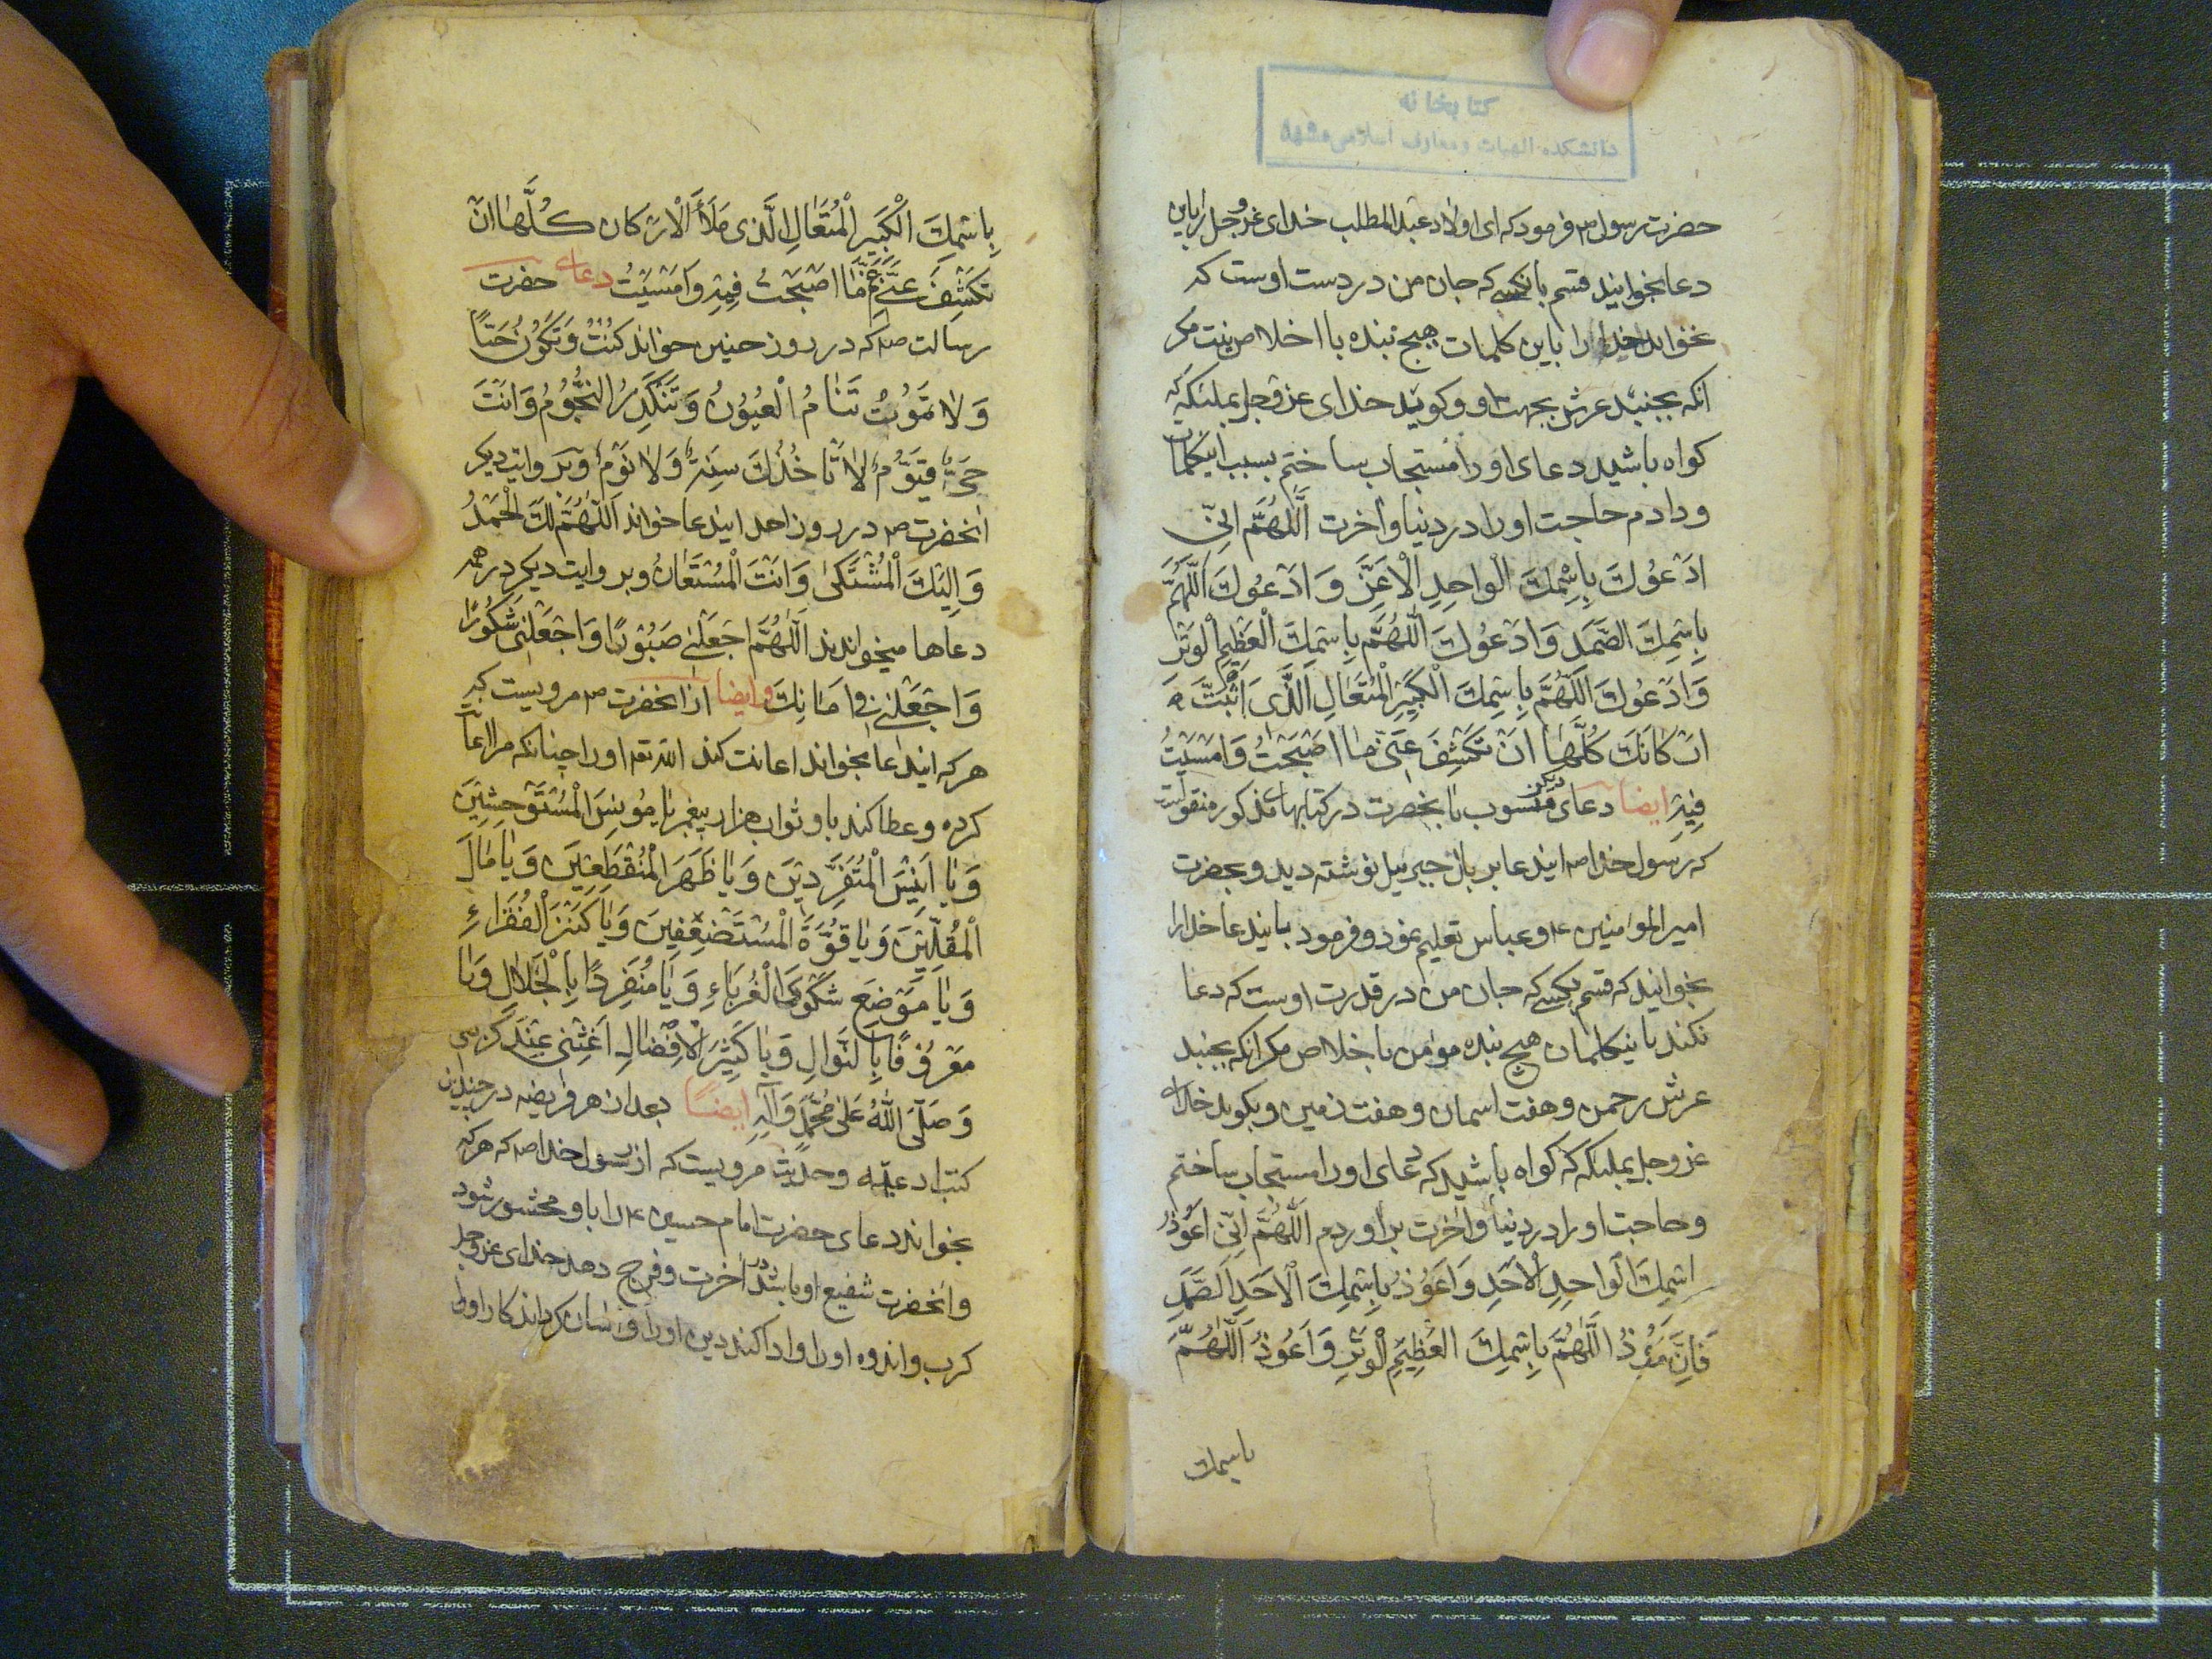 کتابخانه
دانشکده الهیات و معارف اسلامی مشهد
حضرت رسول ص فرمود که ای اولاد عبد المطلب خدای عزوجل را باین
دعا بخوانید قسم بانکسی که جان من در دست اوست که
نخواند خدا را باین کلمات هیچ بنده با اخلاص نیت مکر
انکه بجنبد عرش بجهت او و کوید خدای عز وجل بملئکه که
کواه باشید دعای او را مستجاب ساختم بسبب اینکلمات
و دادم حاجت او را در دنیا و آخرت اَللّٰهُمَّ اِنّی
اَدْعُوكَ بِاِسْمِكَ الْواحِدِ الْاَعَزِّ وَ اَدْعُوكَ اَللّٰهُمَّ
بِاِسْمِكَ الصَّمَدِ وَ اَدْعُوكَ اَللّٰهُمَّ بِاِسْمِكَ الْعَظِيمِ الْوَتْرِ
وَ اَدْعُوكَ اَللّٰهُمَّ بِاِسْمِكَ الْكَبِيرِ الْمُتَعَالِ الَّذی اَثْبَتَّ بِهِ
اَرْكَانَكَ كُلَّهَا اَنْ تَكْشِفَ عَنّی مَا اَصْبَحْتُ وَ اَمْسَيْتُ
فِيهِ ایضا دعای دیکر منسوب بانحضرت در کتابهای مذکور منقولست
که رسول خدا ص ایندعا بر بال جبرئیل نوشته دید و بحضرت
امیر المؤمنین ع و عباس تعلیم نمود و فرمود بایندعا خدا را
بخوانید که قسم بکسی که جان من در قدرت اوست که دعا
نکند باینکلمات هیچ بنده مؤمن باخلاص مکر انکه بجنبد
عرش رحمن و هفت اسمان و هفت زمین و بکوید خدای
عزوجل بملئکه که کواه باشید که دعای او را مستجاب ساختم
و حاجت او را در دنیا و اخرت براوردم اَللّٰهُمَّ اِنّی اَعُوذُ
اِسْمِكَ الْواحِدِ الْاَحَدِ وَ اَعُوذُ بِاِسْمِكَ الْاَحَدِ الصَّمَدِ
اَللّٰهُمَّ بِاِسْمِكَ الْعَظِيمِ الْوَتْرِ وَ اَعُوذُ اَللّٰهُمَّ
باسمك
بِاِسْمِكَ الْكَبِيرِ الْمُتَعَالِ الَّذی مَلَأَ الْاَرْكَانَ كُلَّهَا اَنْ
تَكْشِفَ عَنّی مَا اَصْبَحْتُ فِيهِ وَ اَمْسَيْتُ دعای حضرت
رسالت ص که در روز حنین خواند كُنْتَ وَ تَكُونُ حَيًّا
وَ لَا تَمُوتُ تَنَامُ الْعُيُونُ وَ تَنْكَدِرُ النُّجُومُ وَ اَنْتَ
حَیٌّ قَيُّومٌ لَا تَاخُذُكَ سِنَةٌ وَ لَا نَوْمٌ و بر وایت دیکر
انحضرت ص در روز احد ایندعا خواند اَللّٰهُمَّ لَكَ الْحَمْدُ
وَ اِلَيْكَ الْمُشْتَكیٰ وَ اَنْتَ الْمُسْتَعَانُ و بر وایت دیکر در همه
دعاها میخواندند اَللّٰهُمَّ اجْعَلْنی صَبُورًا وَ اجْعَلْنی شَكُورًا
وَ اجْعَلْنی فی اَمَانِكَ و ایضا از انحضرت ص مرویست که
هر که ایندعا بخواند اعانت کند الله تع او را چنانکه مرا اعانت
کرده و عطا کند باو ثواب هزار پیغمبر یَا مُونِسَ الْمُسْتَوْحِشِينَ
وَ يَا اَنِيسَ الْمُتَفَرِّدِينَ وَ يَا ظَهْرَ الْمُنْقَطِعِينَ وَ يَا مَالَ
الْمُقِلّينَ وَ يَا قُوَّةَ الْمُسْتَضْعَفِينَ وَ يَا كَنْزَ الْفُقَرَاءِ
وَ يَا مَوْضِعَ شَكْوَی الْغُرَبَاءِ وَ يَا مُنْفَرِدًا بِالْجَلَالِ وَ يَا
مَعْرُوفًا بِالنَّوَالِ وَ يَا كَثِيرَ الْاِفْضَالِ اَغِثْنی عِنْدَ كُرْبَتی
وَ صَلَّی اللّٰهُ عَلیٰ مُحَمَّدٍ وَ آلِهِ ایضًا بعد از هر فریضه در چندین
کتب ادعیه و حدیث مرویست که از رسول خدا ص که هر که
بخواند دعای حضرت امام حسین ع را با او محشور شود
و انحضرت شفیع او باشد در اخرت و فرج دهد خدای عزوجل
کرب و اندوه او را و ادا کند دین او را و اسان کرداند کار او را